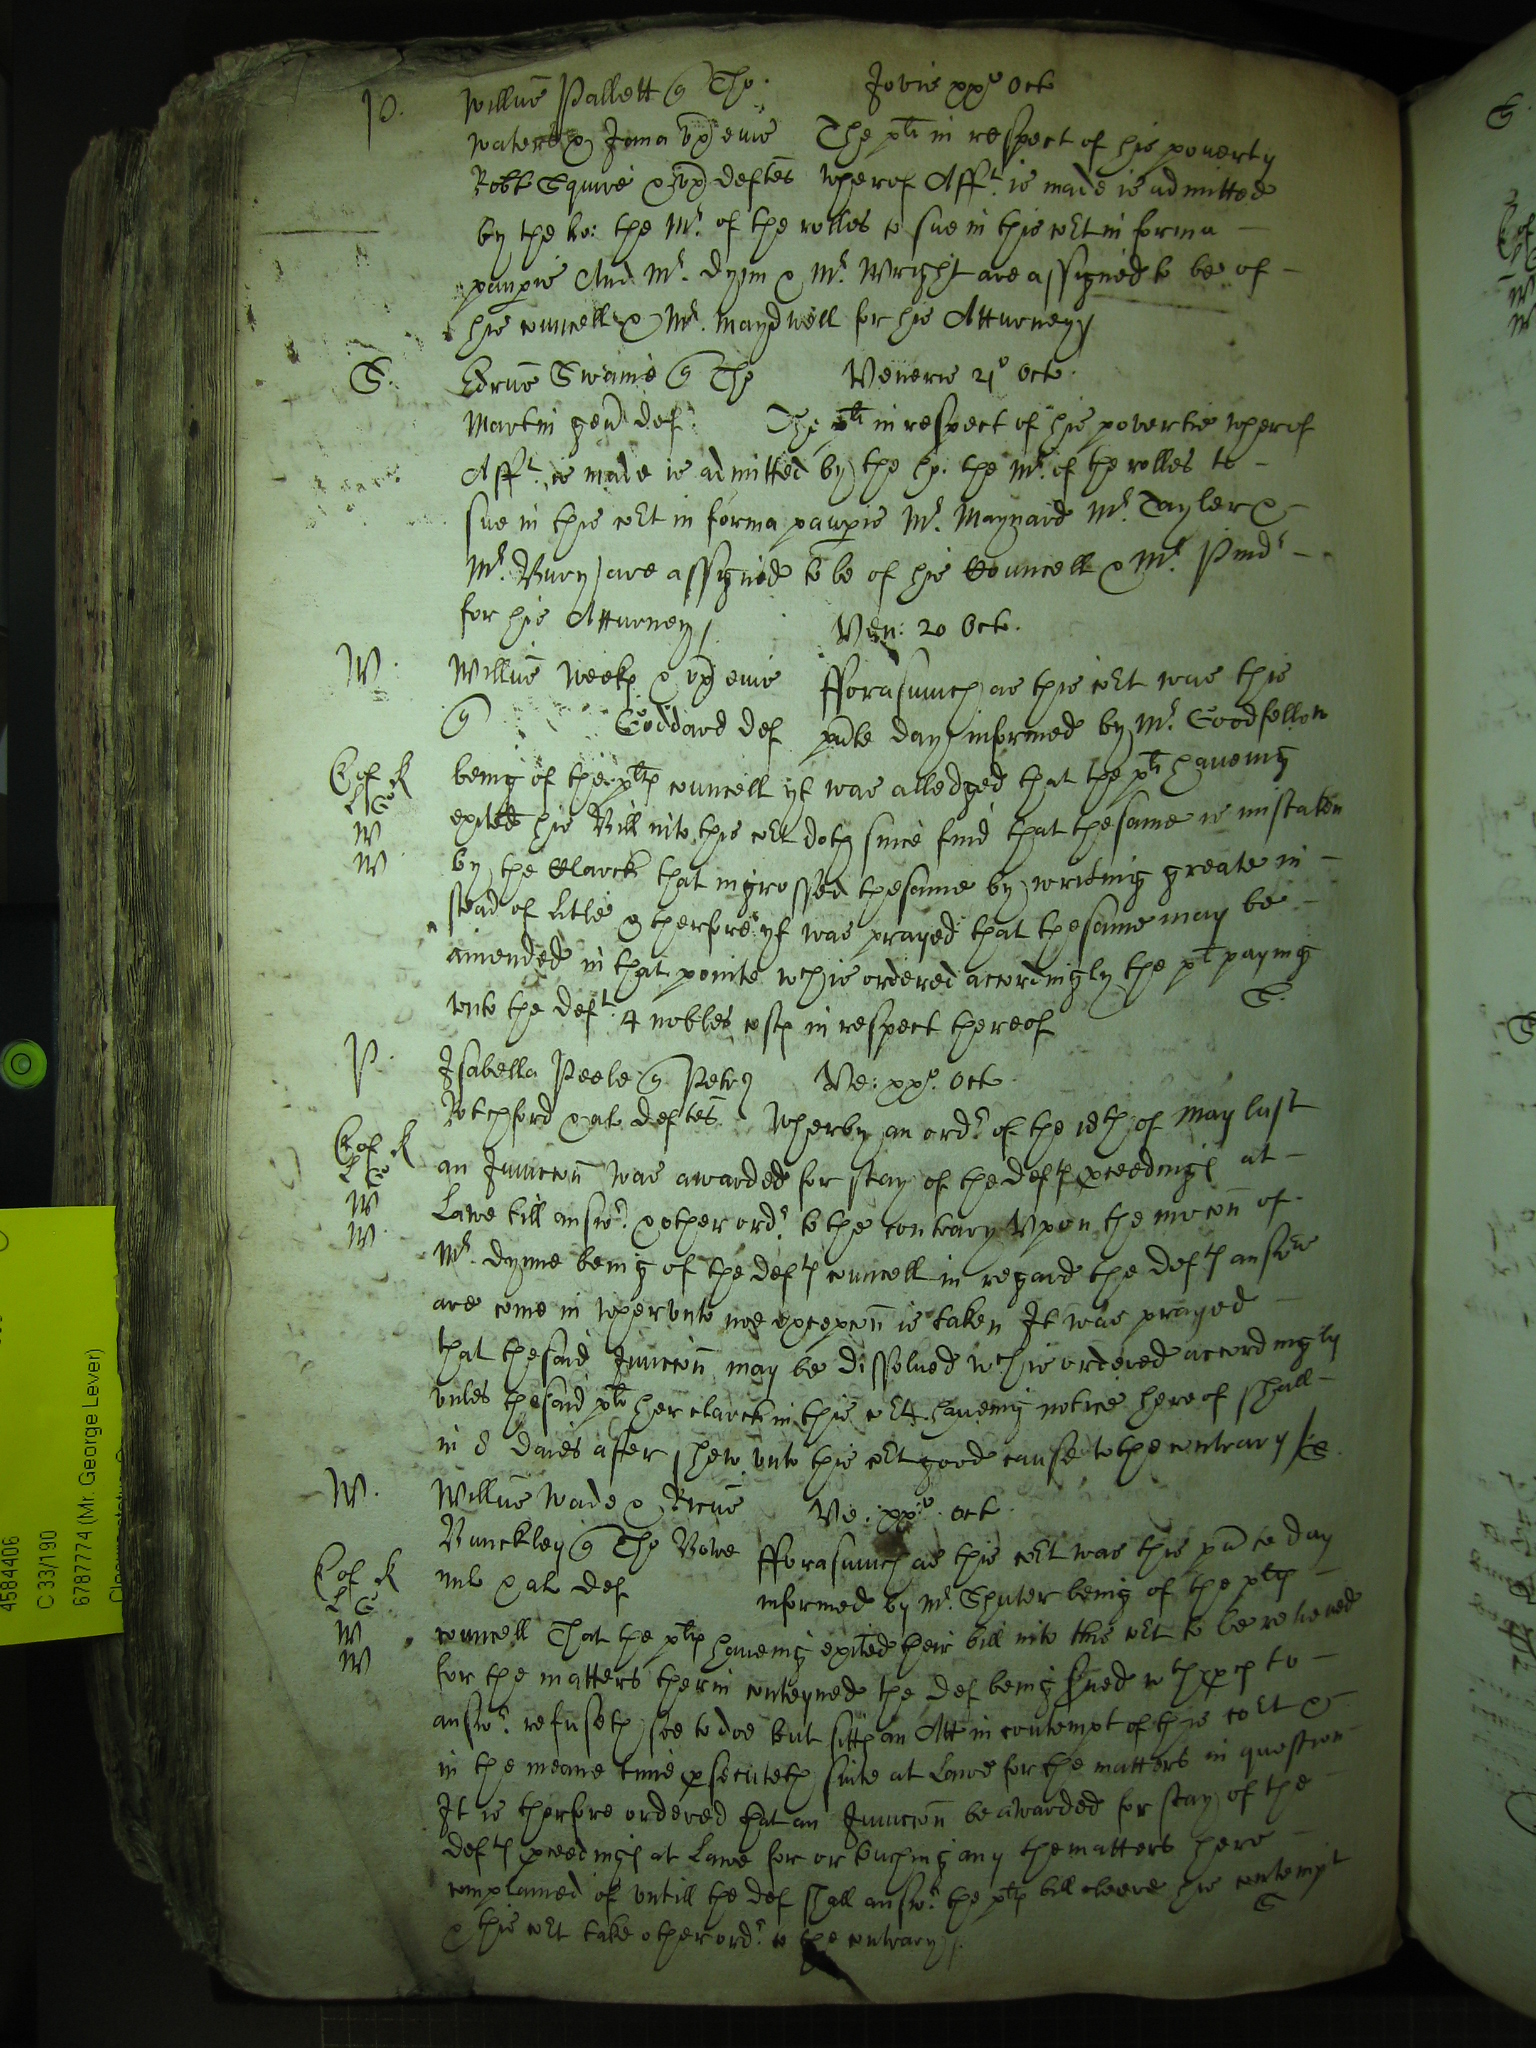 P. Willus Pallett q Tho: Jovis xxº Octo
Waters & Jana ux eius The plt in respect of his poverty
Robt Squire & ux deftes wherof Afft. is made is admitted
by the ho: the Mr. of the rolles to sue in this cort in forma
paupis And Mr. Dyem & Mr. Wright are assigned to be of
his councell & Mr. Maydwell for his Atturney
S. Edrus Swaine q Tho Veneris 21º Octo.
Martin gen def. The plt in respect of his povertie wherof
Afft. is made is admitted by the ho. the Mr. of the rolles to
sue in this cort in forma paupis Mr. Maynard Mr. Tayler &
Mr. Bury are assigned to be of his Councell & Mr. Pindr
for his Atturney
Ven: 20 Octo.
W. Willus Weekes & ux eius fforasmuch as this cort was this
q Goddard def pnte day informed by Mr. Goodfellow
E of K being of the plts councell yt was alledged that the plt haveing
L G exited his Bill into this cort doth since find that thesame is mistaken
W
W by the Clarck that ingrossed thesame by writing greate in
stead of litle & therfore yt was prayed that thesame may be
amended in that pointe wch is ordered accordingly the plt paying
unto the deft. 4 nobles costs in respect thereof S.
P. Isabella Peele q Petrum Ve: xxº. Octo.
Rotchford & al deftes Wherby an ordr. of the 18th of May last
E of K
L G an Iniuccon was awarded for stay of the defts pceedings at
W Lawe till answr. & other ordr. to the contrary Upon the mocon of
W Mr. Dynne being of the defts councell in regard the defts answrs
are come in wherunto noe excepcon is taken It was prayed
that thesaid Iniuccon may be dissolved wch is ordered accordingly
unles thesaid plt her clarck in this cort haveing notice hereof shall
in 8 daies after shew unto this cort good cause to the contrary S.
W. Willus Wade & Ricus Ve: xxº. Oct.
Bunckley q Tho Bowe fforasmuch as this cort was this pnte day
E of K mil & al def informed by Mr. Shuter being of the plts
L G
W councell That the plts haveing exited their bill into this cort to be releived
W for the matters therin conteyned the def being served wth pces to
answr. refuseth soe to doe but sitts an Att in contempt of this cort &
in the meane time psecuteth suite at Lawe for the matters in question
It is therfore ordered that an Iniuccon be awarded for stay of the
defts pceedings at Lawe for or touching any the matters here
complained of untill the def shall answr. the plts bill cleere his contempt
& this cort take other ordr. to the contrary S
4584406
C 33/190
6787774 (Mr. George Lever)